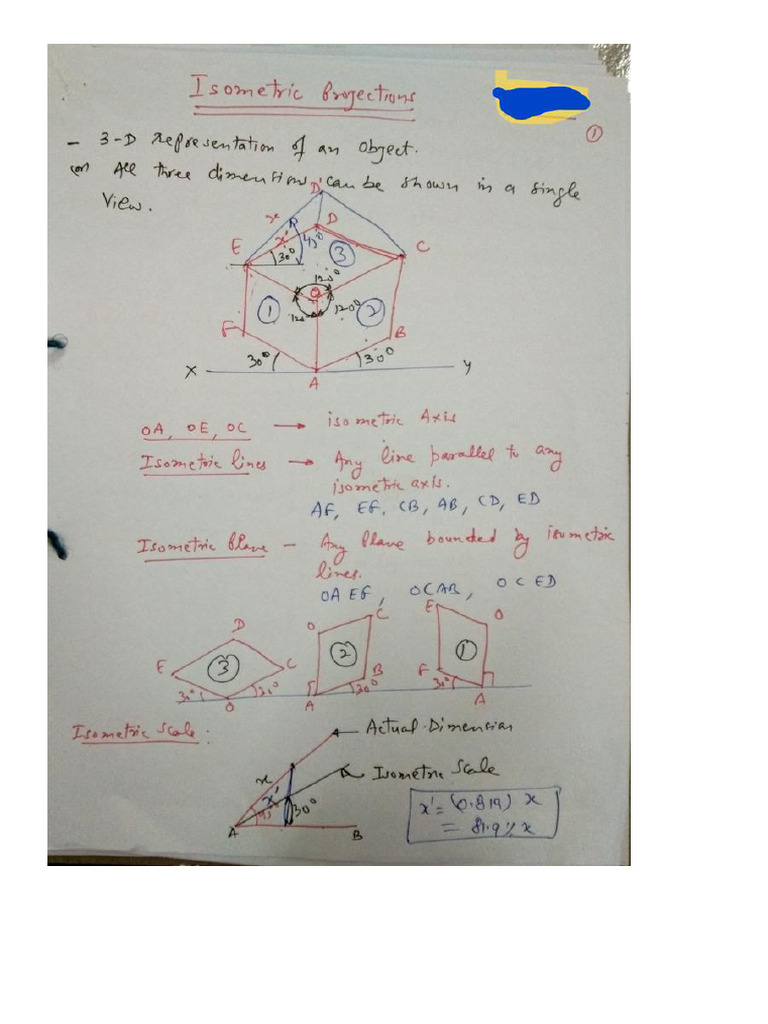 Isometric Projections
①
- 3-D Representation of an Object.
(or) All three dimensions can be shown in a single
View.
D'
x
P
D
x'
45°
E
30°
3
C
120°
O
1
120°
2
120°
F
B
30°
30°
X
Y
A
OA, OE, OC → isometric Axis
Isometric lines → Any line parallel to any
isometric axis.
AF, EF, CB, AB, CD, ED
Isometric Plane - Any Plane bounded by isometric
lines.
OAEF, OCAB, OCED
D
E
3
C
30°
30°
O
O
C
2
B
A
30°
E
O
1
F
30°
A
Isometric Scale:
Actual Dimension
x
Isometric Scale
x'
45
30°
A
B
x' = (0.819) x
= 81.9% x